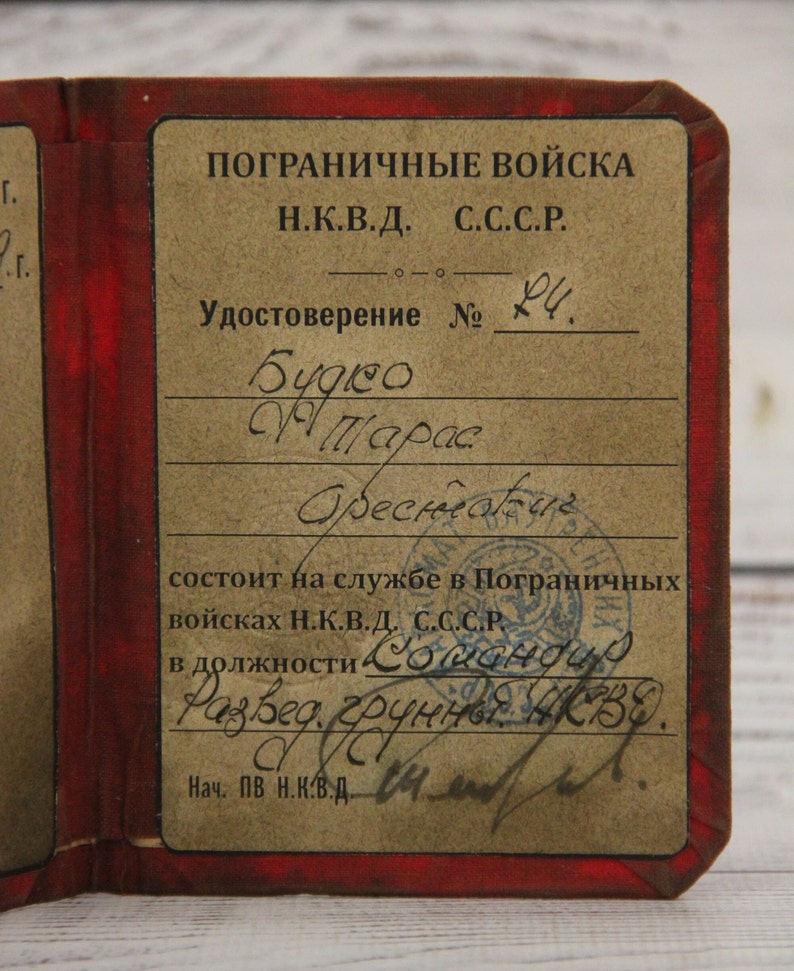 г.
г.
ПОГРАНИЧНЫЕ ВОЙСКА
Н.К.В.Д. С.С.С.Р.
Удостоверение №
Будко
Тарас
Орестович
состоит на службе в Пограничных
войсках Н.К.В.Д. С.С.С.Р.
в должности Командир
Развед. группы НКВД.
Нач. ПВ Н.К.В.Д.
ВНУТРЕННИХ